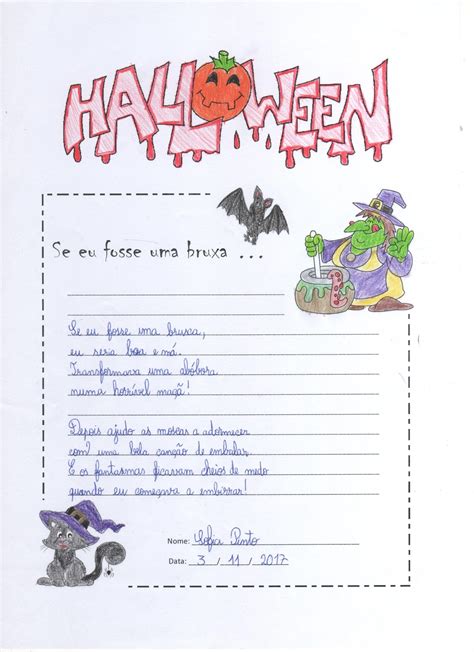 HALLOWEEN
Se eu fosse uma bruxa ...
Se eu fosse uma bruxa,
eu seria boa e má.
Transformava uma abóbora
numa horrível maçã!
Depois ajudo as moscas a adormecer
com uma bela canção de embalar.
E os fantasmas ficavam cheios de medo
quando eu começava a embirrar!
Nome: Sofia Pinto
Data: 3 / 11 / 2017